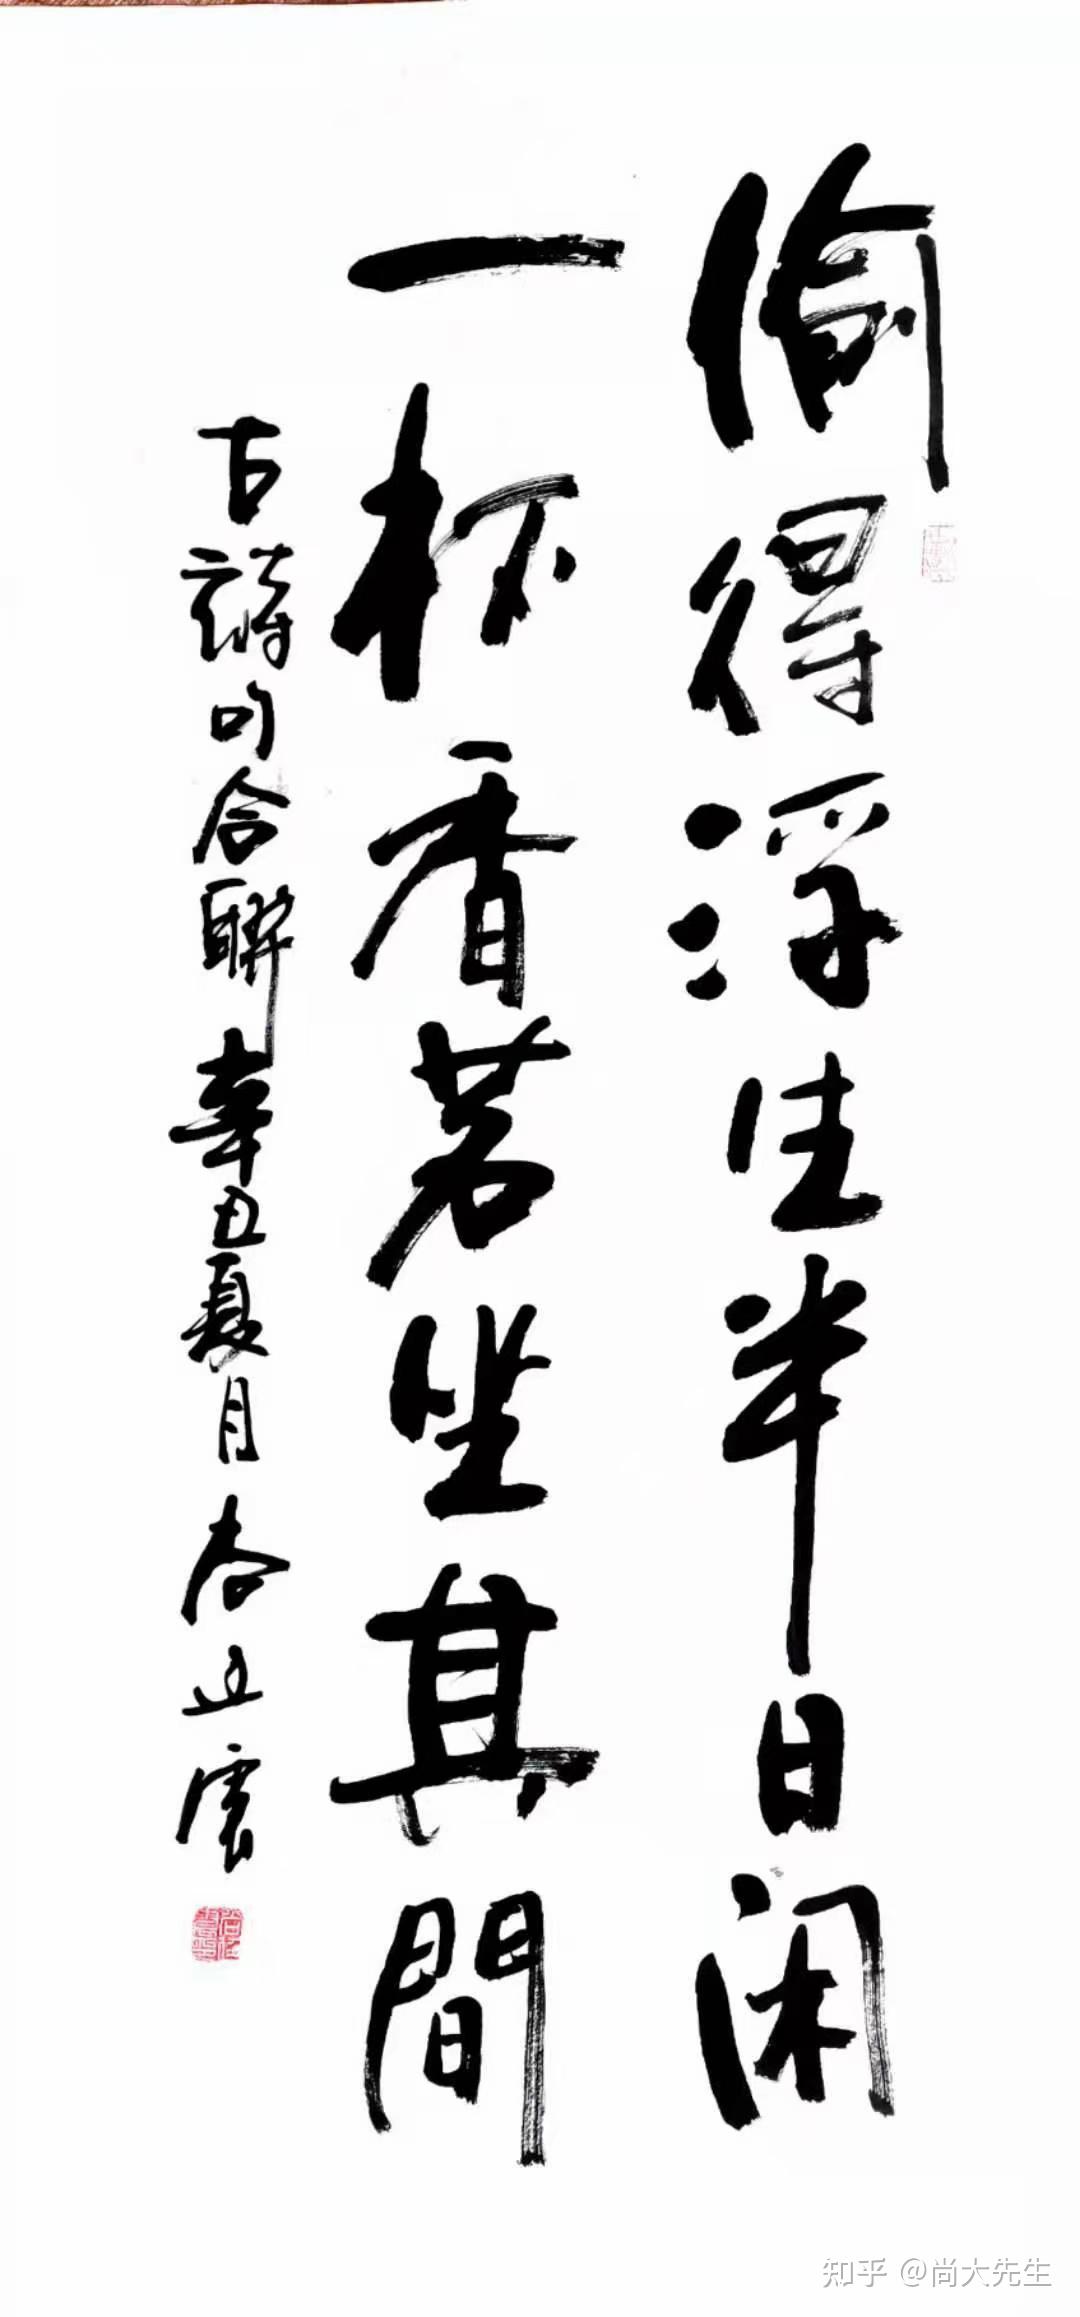 偷得浮生半日闲
一杯香茗坐其間
古詩句合聯辛丑夏月
知乎 @尚大先生